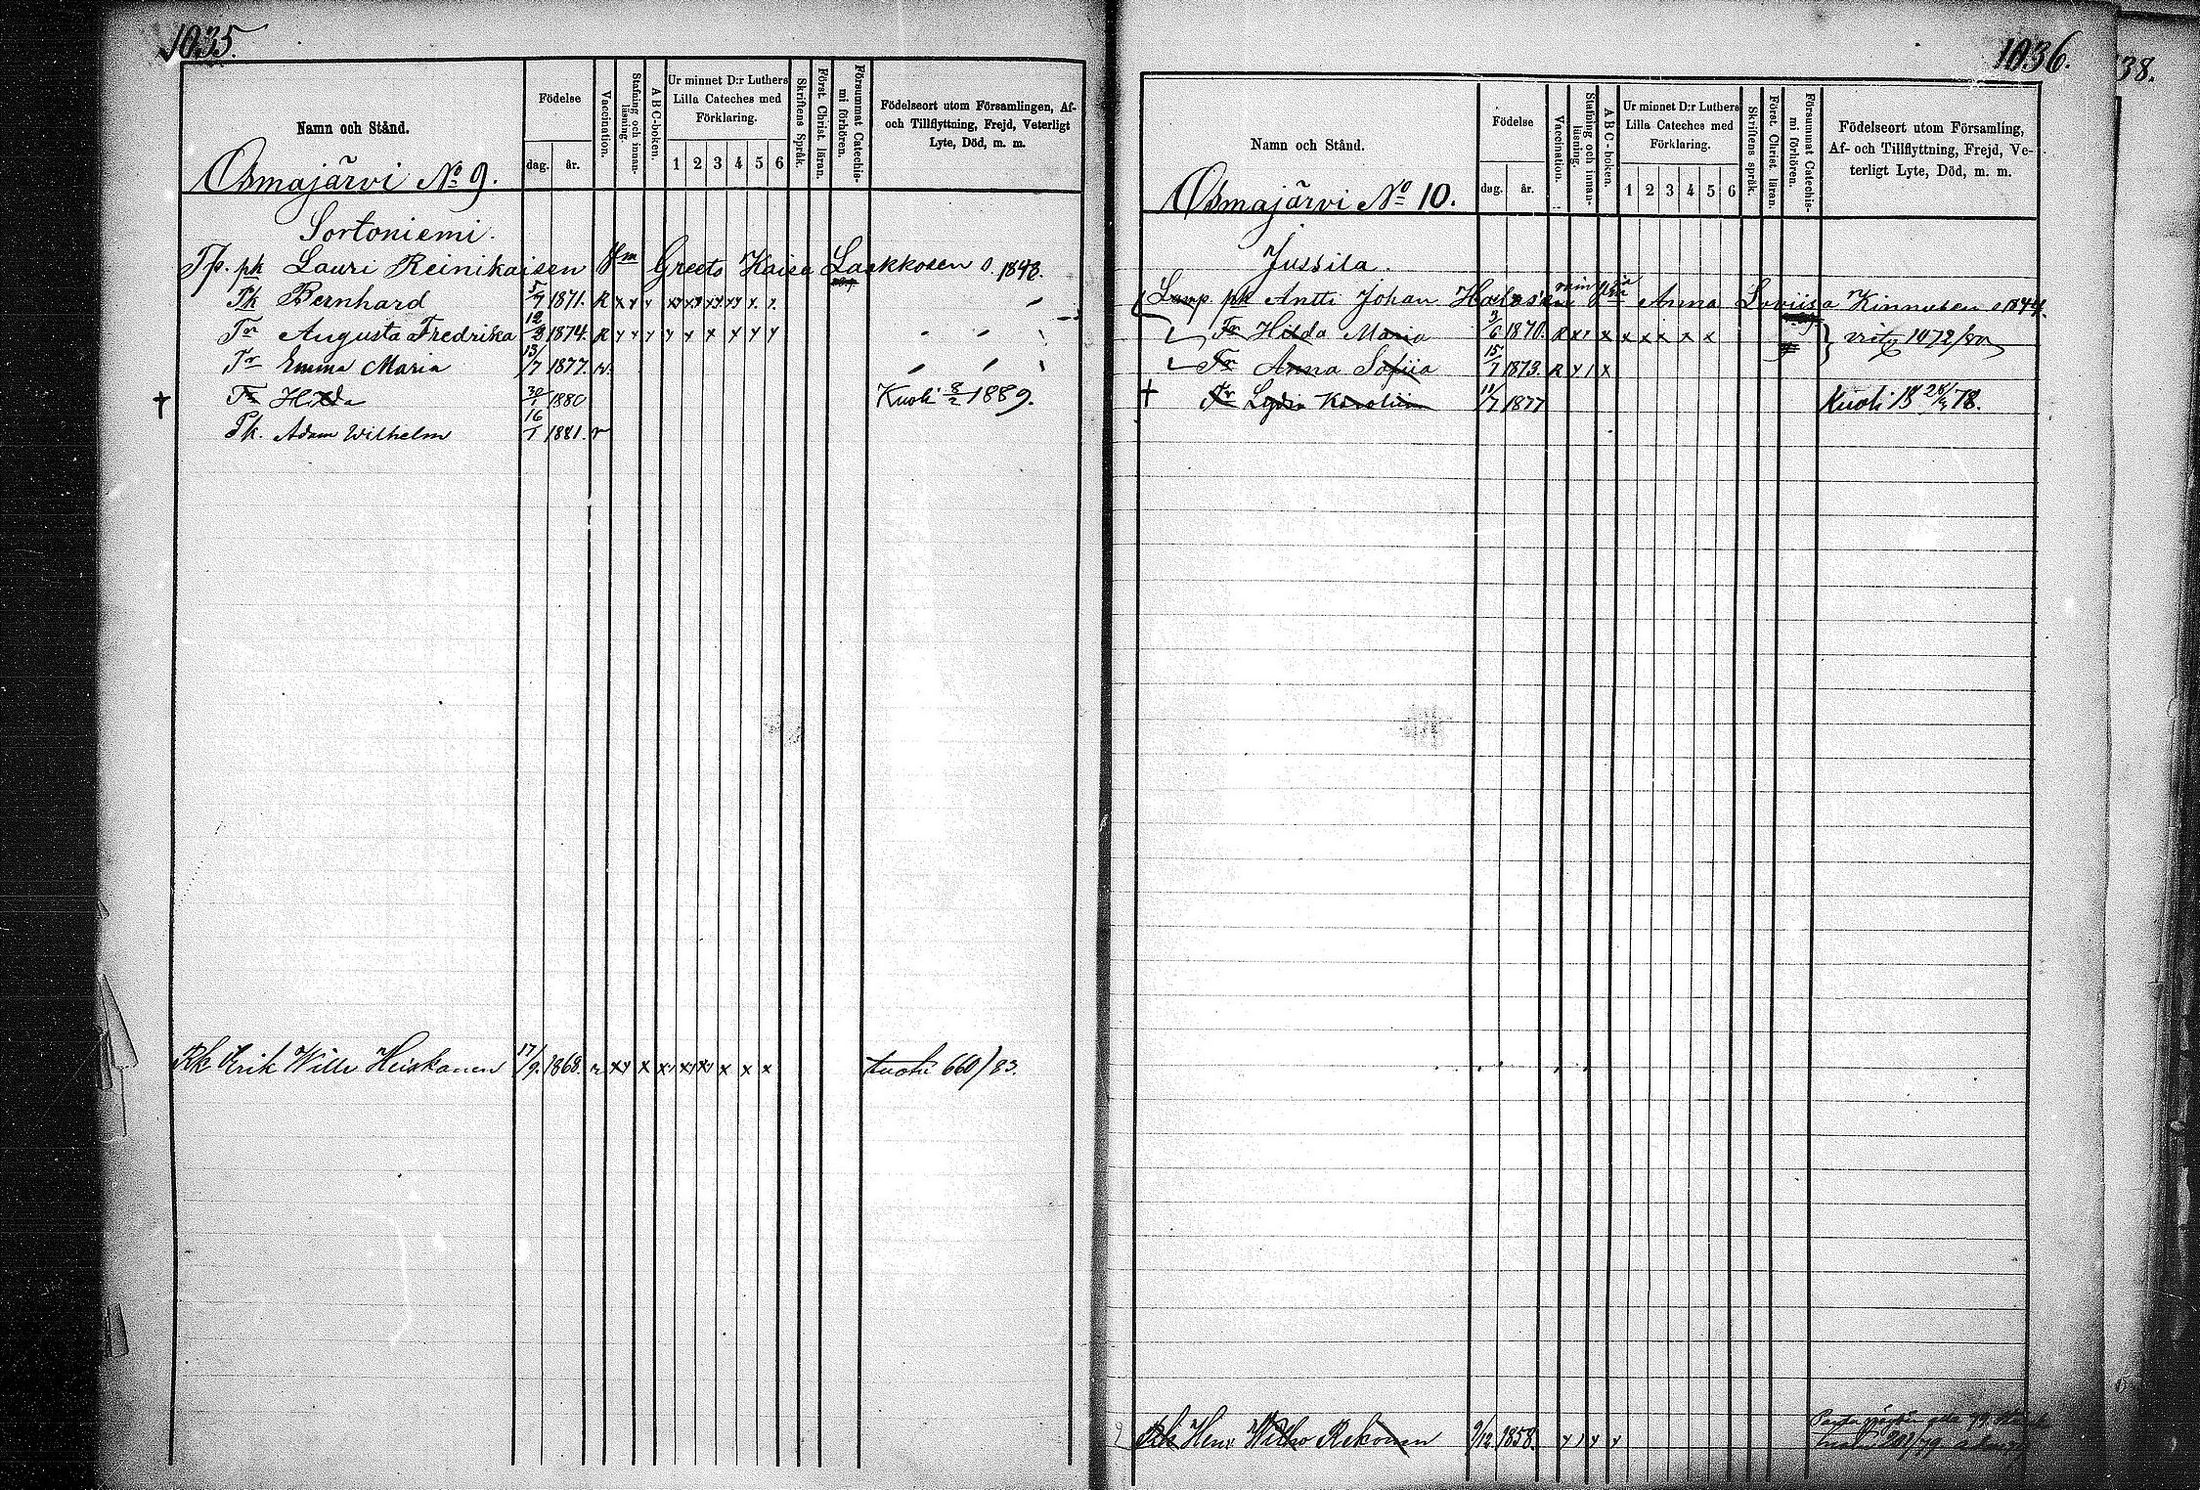 1035.
Namn och Stånd.
Födelse
dag. år.
Vaccination.
Stafning och innan-läsning.
A B C-boken.
Ur minnet D:r Luthers
Lilla Cateches med
Förklaring.
1 2 3 4 5 6
Skriftens Språk.
Först. Christ. läran.
Försummat Catechis-mi förhören.
Födelseort utom Församlingen, Af-
och Tillflyttning, Frejd, Veterligt
Lyte, Död, m. m.
Osmajärvi No 9.
Sortoniemi.
Tp. pk Lauri Reinikaisen Greeta Kaisa Laakkosen s. 1848.
Pk Bernhard 5/7 1871. R x y y xy xy xy xy y. y.
Tr Augusta Fredrika 12/3 1874. R y y y y y x y y y
Tr Emma Maria 13/7 1877. r.
† Tr Hilda 30/1 1880 Kuoli 8/2 1889.
Pk. Adam Wilhelm 16/1 1881. r
Rk Erik Wille Heiskanen 17/9. 1868. r xy x xy xy xy x x x tuohi 660/83.
1036.
Namn och Stånd.
Födelse
dag. år.
Vaccination.
Stafning och innan-läsning.
A B C-boken.
Ur minnet D:r Luthers
Lilla Cateches med
Förklaring.
1 2 3 4 5 6
Skriftens språk.
Först. Christ. läran.
Försummat Catechis-mi förhören.
Födelseort utom Församling,
Af- och Tillflyttning, Frejd, Ve-
terligt Lyte, Död, m. m.
Osmajärvi No 10.
Jussila.
Lamp pk Antti Johan Anna Loviisa Kinnusen s 1844.
Tr Hilda Maria 3/6 1870. R x x x x x x x
Tr Anna Sofiia 15/7 1873. R y 1 x
† Tr Lydia Karoliina 11/7 1877 Kuoli 18 /4 78.
Rk Henr Wilho Rekonen 9/12 1858. y y y
38.